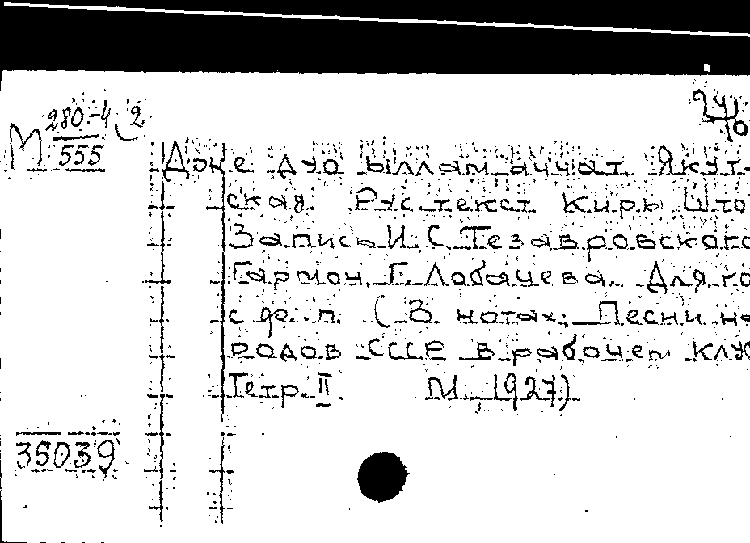 280.-4 2
М 555
24/10
Доке дуо ыллам аччат. Якут-
ская. Рус. текст Киры Што
Запись И. С. Тезавровского
Гармон. Г. Лобачева. Для го
с ф.-п. (В нотах: Песни на
родов СССР в рабочем клу
Тетр. II М., 1927.)
36039